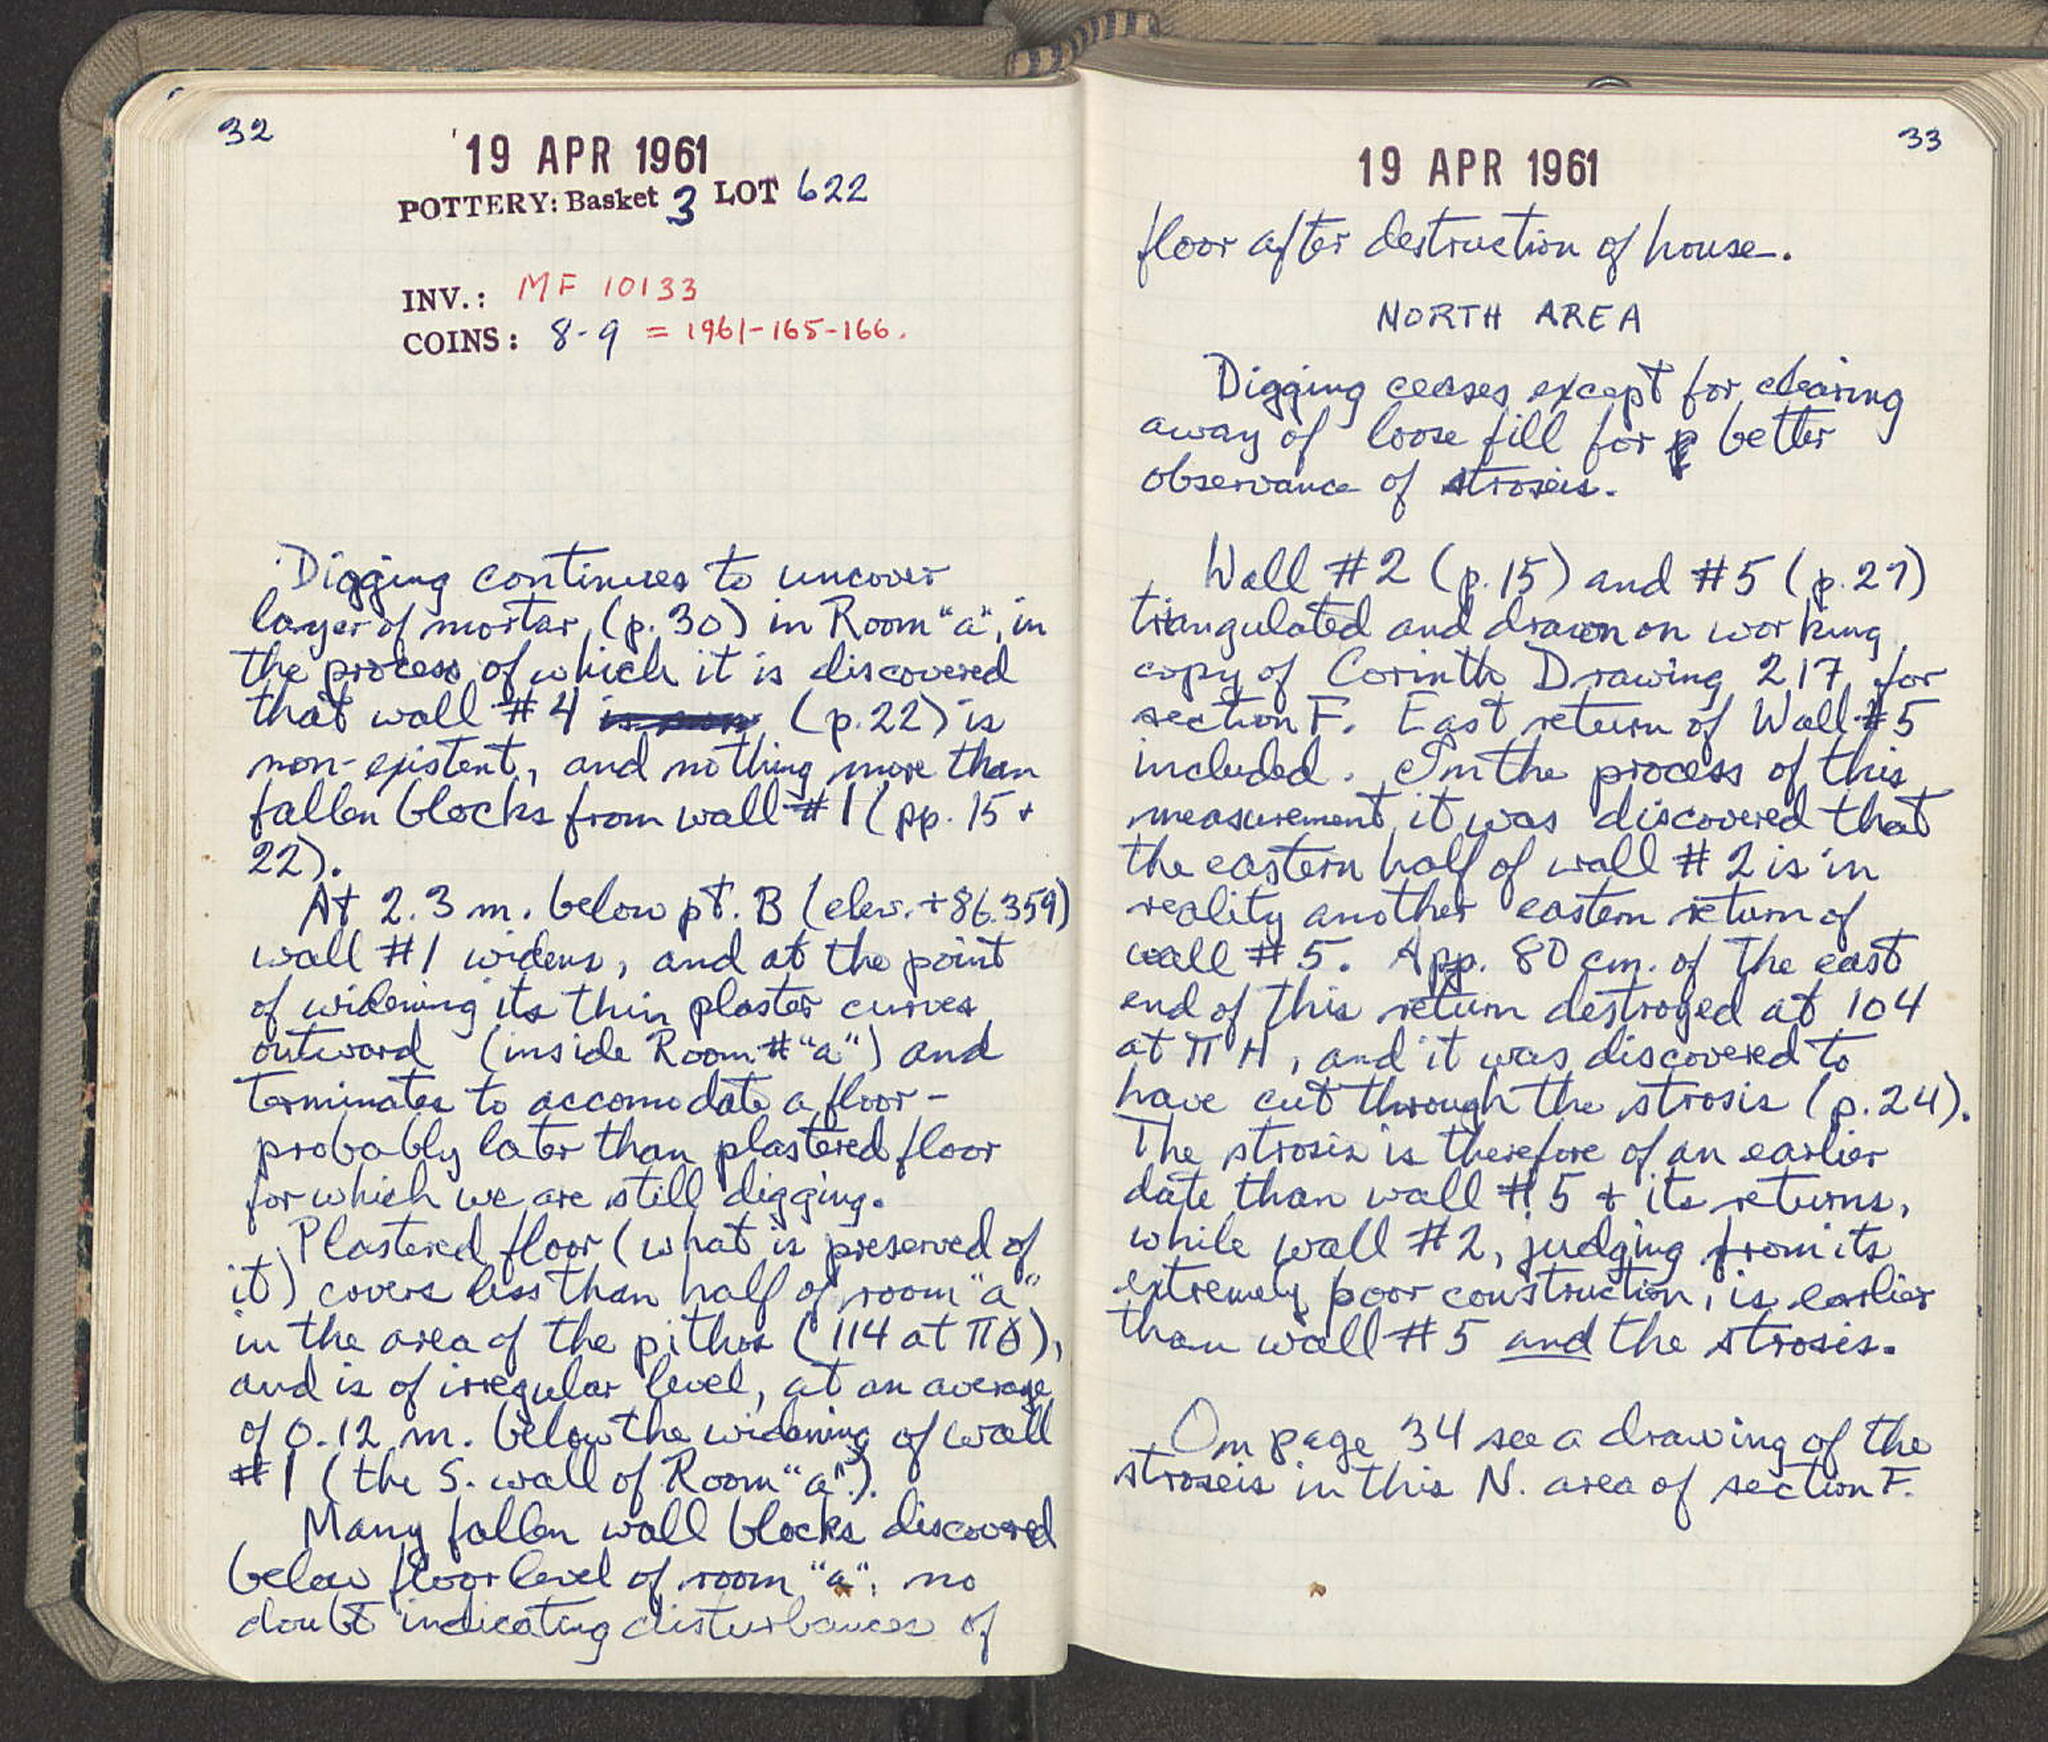 32
19 APR 1961
POTTERY: Basket 3 LOT 622
INV.: MF 10133
COINS: 8-9 = 1961-165-166.
Digging continues to uncover
layer of mortar (p. 30) in Room "a", in
the process of which it is discovered
that wall #4 (p. 22) is
non-existent, and nothing more than
fallen blocks from wall #1 (pp. 15 +
22).
At 2.3 m. below pt. B (elev. +86.359)
wall #1 widens, and at the point
of widening its thin plaster curves
outward (inside Room # "a") and
terminates to accomodate a floor -
probably later than plastered floor
for which we are still digging.
Plastered floor (what is preserved of
it) covers less than half of room "a"
in the area of the pithos (114 at Πδ),
and is of irregular level, at an average
of 0.12 m. below the widening of wall
#1 (the S. wall of Room "a").
Many fallen wall blocks discovered
below floor level of room "a", no
doubt indicating disturbances of
33
19 APR 1961
floor after destruction of house.
NORTH AREA
Digging ceases except for clearing
away of loose fill for better
observance of stroseis.
Wall #2 (p. 15) and #5 (p. 27)
triangulated and drawn on working
copy of Corinth Drawing 217 for
section F. East return of Wall #5
included. In the process of this
measurement it was discovered that
the eastern half of wall #2 is in
reality another eastern return of
wall #5. App. 80 cm. of the east
end of this return destroyed at 104
at ΠH, and it was discovered to
have cut through the strosis (p. 24).
The strosis is therefore of an earlier
date than wall #5 + its returns,
while wall #2, judging from its
extremely poor construction, is earlier
than wall #5 and the strosis.
On page 34 see a drawing of the
stroseis in this N. area of section F.